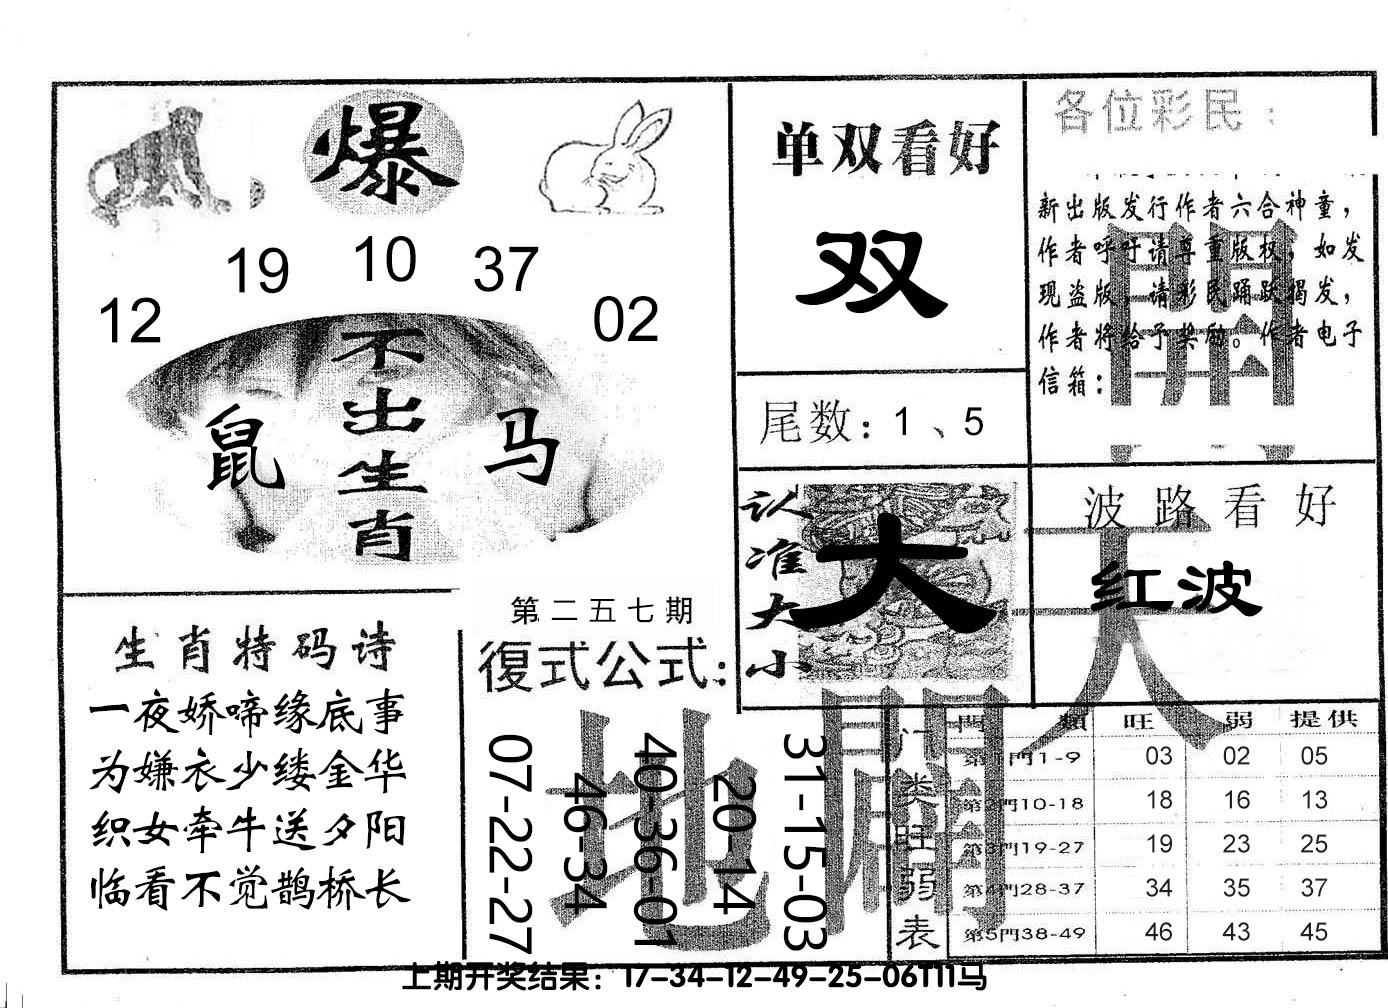 爆
12 19 10 37 02
不出生肖
鼠 马
单双看好
双
尾数：1、5
各位彩民：
新出版发行作者六合神童，
作者呼吁请尊重版权，如发
现盗版，请彩民踊跃揭发，
作者将给予奖励。作者电子
信箱：
認准大小
大
波路看好
红波
天
開
生肖特码诗
一夜娇啼缘底事
为嫌衣少缕金华
织女牵牛送夕阳
临看不觉鹊桥长
第二五七期
復式公式：
07-22-27
46-34
40-36-01
20-14
31-15-03
地
開
门类旺弱表
門類 旺 弱 提供
第1門1-9 03 02 05
第2門10-18 18 16 13
第3門19-27 19 23 25
第4門28-37 34 35 37
第5門38-49 46 43 45
上期开奖结果：17-34-12-49-25-06T11马